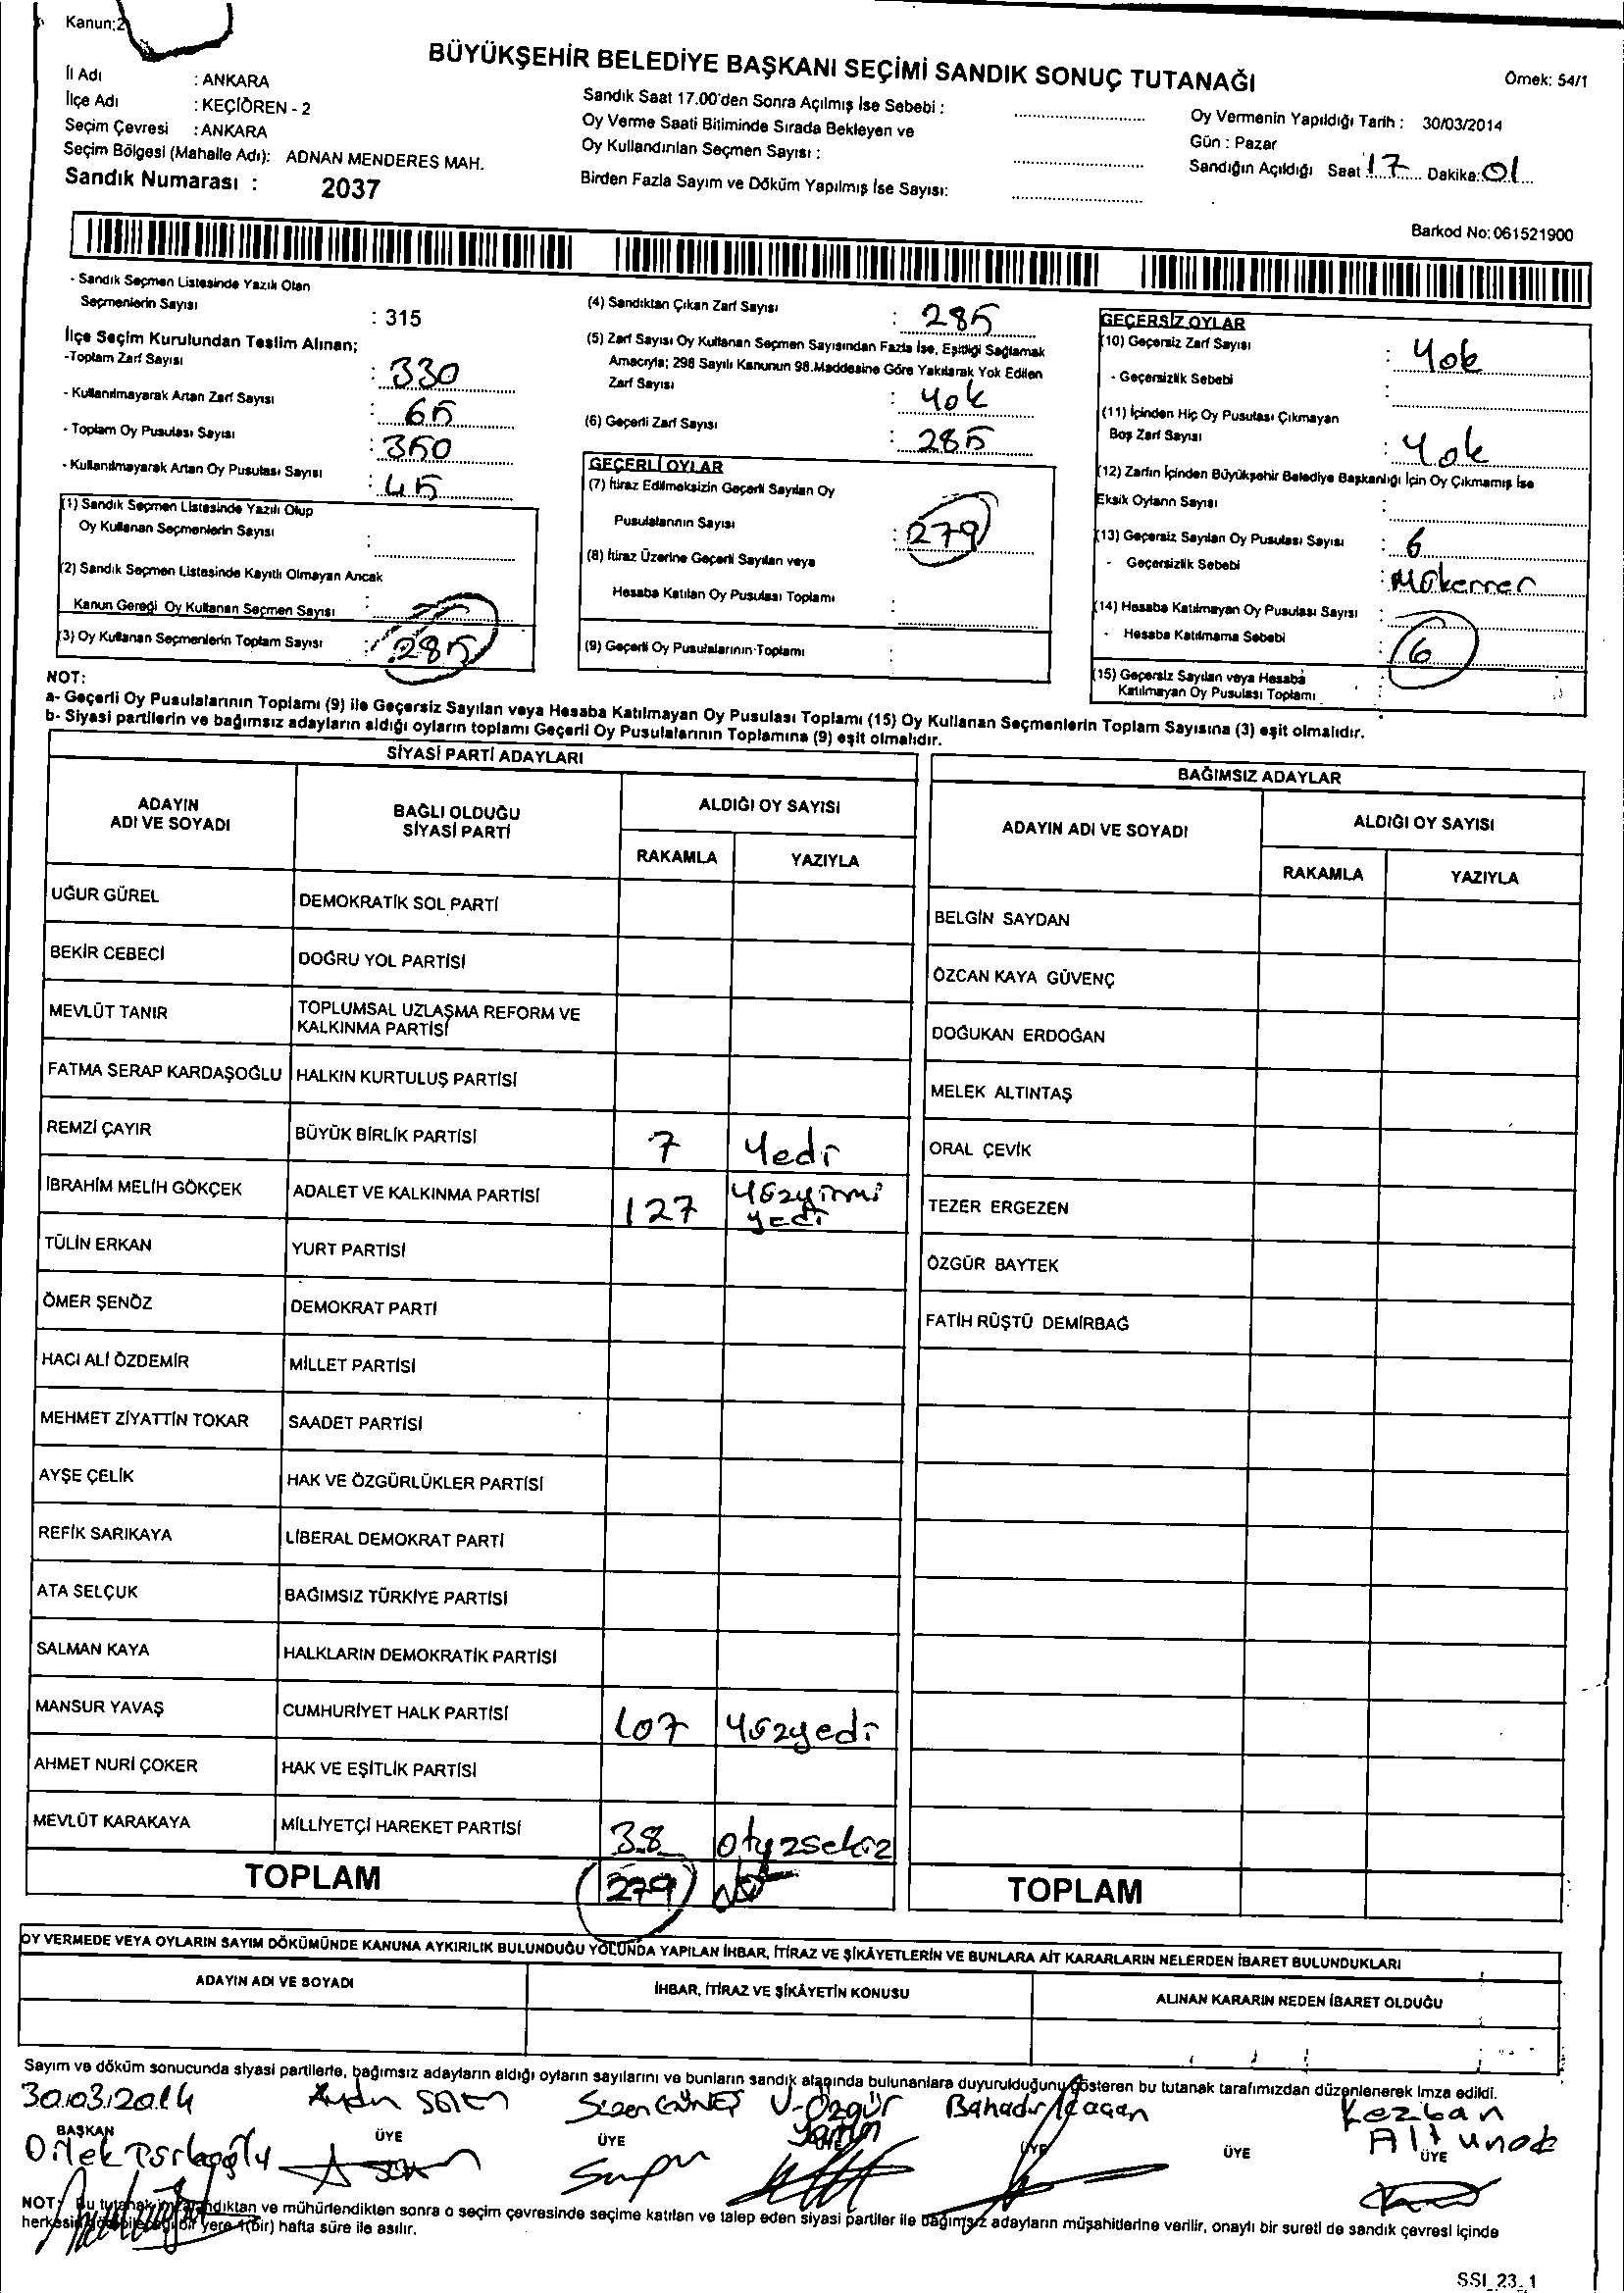 Kanun:2
BÜYÜKŞEHİR BELEDİYE BAŞKANI SEÇİMİ SANDIK SONUÇ TUTANAĞI
Örnek: 54/1
İl Adı : ANKARA
İlçe Adı : KEÇİÖREN - 2
Seçim Çevresi : ANKARA
Seçim Bölgesi (Mahalle Adı): ADNAN MENDERES MAH.
Sandık Numarası : 2037
Sandık Saat 17.00'den Sonra Açılmış İse Sebebi :
Oy Verme Saati Bitiminde Sırada Bekleyen ve
Oy Kullandırılan Seçmen Sayısı :
Birden Fazla Sayım ve Döküm Yapılmış İse Sayısı:
Oy Vermenin Yapıldığı Tarih : 30/03/2014
Gün : Pazar
Sandığın Açıldığı Saat 17 Dakika: 01
Barkod No: 061521900
- Sandık Seçmen Listesinde Yazılı Olan
Seçmenlerin Sayısı : 315
İlçe Seçim Kurulundan Teslim Alınan;
-Toplam Zarf Sayısı : 330
- Kullanılmayarak Artan Zarf Sayısı : 65
- Toplam Oy Pusulası Sayısı : 350
- Kullanılmayarak Artan Oy Pusulası Sayısı : 45
(1) Sandık Seçmen Listesinde Yazılı Olup
Oy Kullanan Seçmenlerin Sayısı :
(2) Sandık Seçmen Listesinde Kayıtlı Olmayan Ancak
Kanun Gereği Oy Kullanan Seçmen Sayısı :
(3) Oy Kullanan Seçmenlerin Toplam Sayısı : 285
(4) Sandıktan Çıkan Zarf Sayısı : 285
(5) Zarf Sayısı Oy Kullanan Seçmen Sayısından Fazla İse, Eşitliği Sağlamak
Amacıyla; 298 Sayılı Kanunun 98.Maddesine Göre Yakılarak Yok Edilen
Zarf Sayısı : Yok
(6) Geçerli Zarf Sayısı : 285
GEÇERLİ OYLAR
(7) İtiraz Edilmeksizin Geçerli Sayılan Oy
Pusulalarının Sayısı : 279
(8) İtiraz Üzerine Geçerli Sayılan veya
Hesaba Katılan Oy Pusulası Toplamı :
(9) Geçerli Oy Pusulalarının Toplamı :
GEÇERSİZ OYLAR
(10) Geçersiz Zarf Sayısı : Yok
- Geçersizlik Sebebi :
(11) İçinden Hiç Oy Pusulası Çıkmayan
Boş Zarf Sayısı : Yok
(12) Zarfın İçinden Büyükşehir Belediye Başkanlığı İçin Oy Çıkmamış İse
Eksik Oyların Sayısı :
(13) Geçersiz Sayılan Oy Pusulası Sayısı : 6
- Geçersizlik Sebebi : Mükerrer
(14) Hesaba Katılmayan Oy Pusulası Sayısı :
- Hesaba Katılmama Sebebi : 6
(15) Geçersiz Sayılan veya Hesaba
Katılmayan Oy Pusulası Toplamı :
NOT:
a- Geçerli Oy Pusulalarının Toplamı (9) ile Geçersiz Sayılan veya Hesaba Katılmayan Oy Pusulası Toplamı (15) Oy Kullanan Seçmenlerin Toplam Sayısına (3) eşit olmalıdır.
b- Siyasi partilerin ve bağımsız adayların aldığı oyların toplamı Geçerli Oy Pusulalarının Toplamına (9) eşit olmalıdır.
SİYASİ PARTİ ADAYLARI
ADAYIN ADI VE SOYADI
BAĞLI OLDUĞU SİYASİ PARTİ
ALDIĞI OY SAYISI
RAKAMLA YAZIYLA
UĞUR GÜREL DEMOKRATİK SOL PARTİ
BEKİR CEBECİ DOĞRU YOL PARTİSİ
MEVLÜT TANIR TOPLUMSAL UZLAŞMA REFORM VE KALKINMA PARTİSİ
FATMA SERAP KARDAŞOĞLU HALKIN KURTULUŞ PARTİSİ
REMZİ ÇAYIR BÜYÜK BİRLİK PARTİSİ 7 Yedi
İBRAHİM MELİH GÖKÇEK ADALET VE KALKINMA PARTİSİ 127 Yüzyirmi yedi
TÜLİN ERKAN YURT PARTİSİ
ÖMER ŞENÖZ DEMOKRAT PARTİ
HACI ALİ ÖZDEMİR MİLLET PARTİSİ
MEHMET ZİYATTİN TOKAR SAADET PARTİSİ
AYŞE ÇELİK HAK VE ÖZGÜRLÜKLER PARTİSİ
REFİK SARIKAYA LİBERAL DEMOKRAT PARTİ
ATA SELÇUK BAĞIMSIZ TÜRKİYE PARTİSİ
SALMAN KAYA HALKLARIN DEMOKRATİK PARTİSİ
MANSUR YAVAŞ CUMHURİYET HALK PARTİSİ 107 Yüzyedi
AHMET NURİ ÇOKER HAK VE EŞİTLİK PARTİSİ
MEVLÜT KARAKAYA MİLLİYETÇİ HAREKET PARTİSİ 38 otuzsekiz
TOPLAM 279
BAĞIMSIZ ADAYLAR
ADAYIN ADI VE SOYADI
ALDIĞI OY SAYISI
RAKAMLA YAZIYLA
BELGİN SAYDAN
ÖZCAN KAYA GÜVENÇ
DOĞUKAN ERDOĞAN
MELEK ALTINTAŞ
ORAL ÇEVİK
TEZER ERGEZEN
ÖZGÜR BAYTEK
FATİH RÜŞTÜ DEMİRBAĞ
TOPLAM
OY VERMEDE VEYA OYLARIN SAYIM DÖKÜMÜNDE KANUNA AYKIRILIK BULUNDUĞU YOLUNDA YAPILAN İHBAR, İTİRAZ VE ŞİKÂYETLERİN VE BUNLARA AİT KARARLARIN NELERDEN İBARET BULUNDUKLARI
ADAYIN ADI VE SOYADI
İHBAR, İTİRAZ VE ŞİKÂYETİN KONUSU
ALINAN KARARIN NEDEN İBARET OLDUĞU
Sayım ve döküm sonucunda siyasi partilerle, bağımsız adayların aldığı oyların sayılarını ve bunların sandık alanında bulunanlara duyurulduğunu gösteren bu tutanak tarafımızdan düzenlenerek imza edildi.
30.03.2014 Aydın Sezen GÜNEŞ U-Özgür Bahadır Kezban
BAŞKAN ÜYE ÜYE ÜYE ÜYE ÜYE ÜYE
Dilek Altunok
NOT: Bu tutanak imzalandıktan ve mühürlendikten sonra o seçim çevresinde seçime katılan ve talep eden siyasi partiler ile bağımsız adayların müşahitlerine verilir, onaylı bir sureti de sandık çevresi içinde
herkesin görebileceği bir yere 1(bir) hafta süre ile asılır.
SSI_23_1